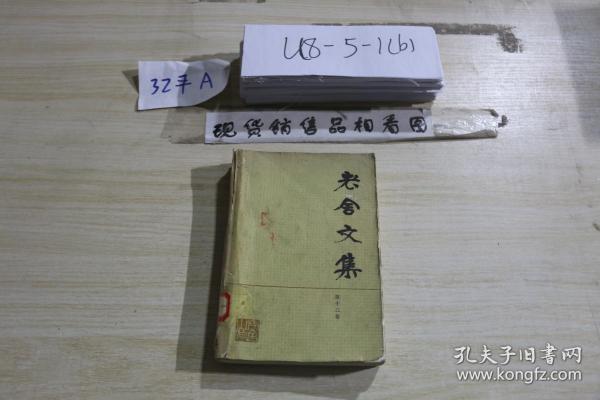 U8-5-1(b)
32开A
现货销售品相看图
老舍文集
第十二卷
孔夫子旧书网
www.kongfz.com